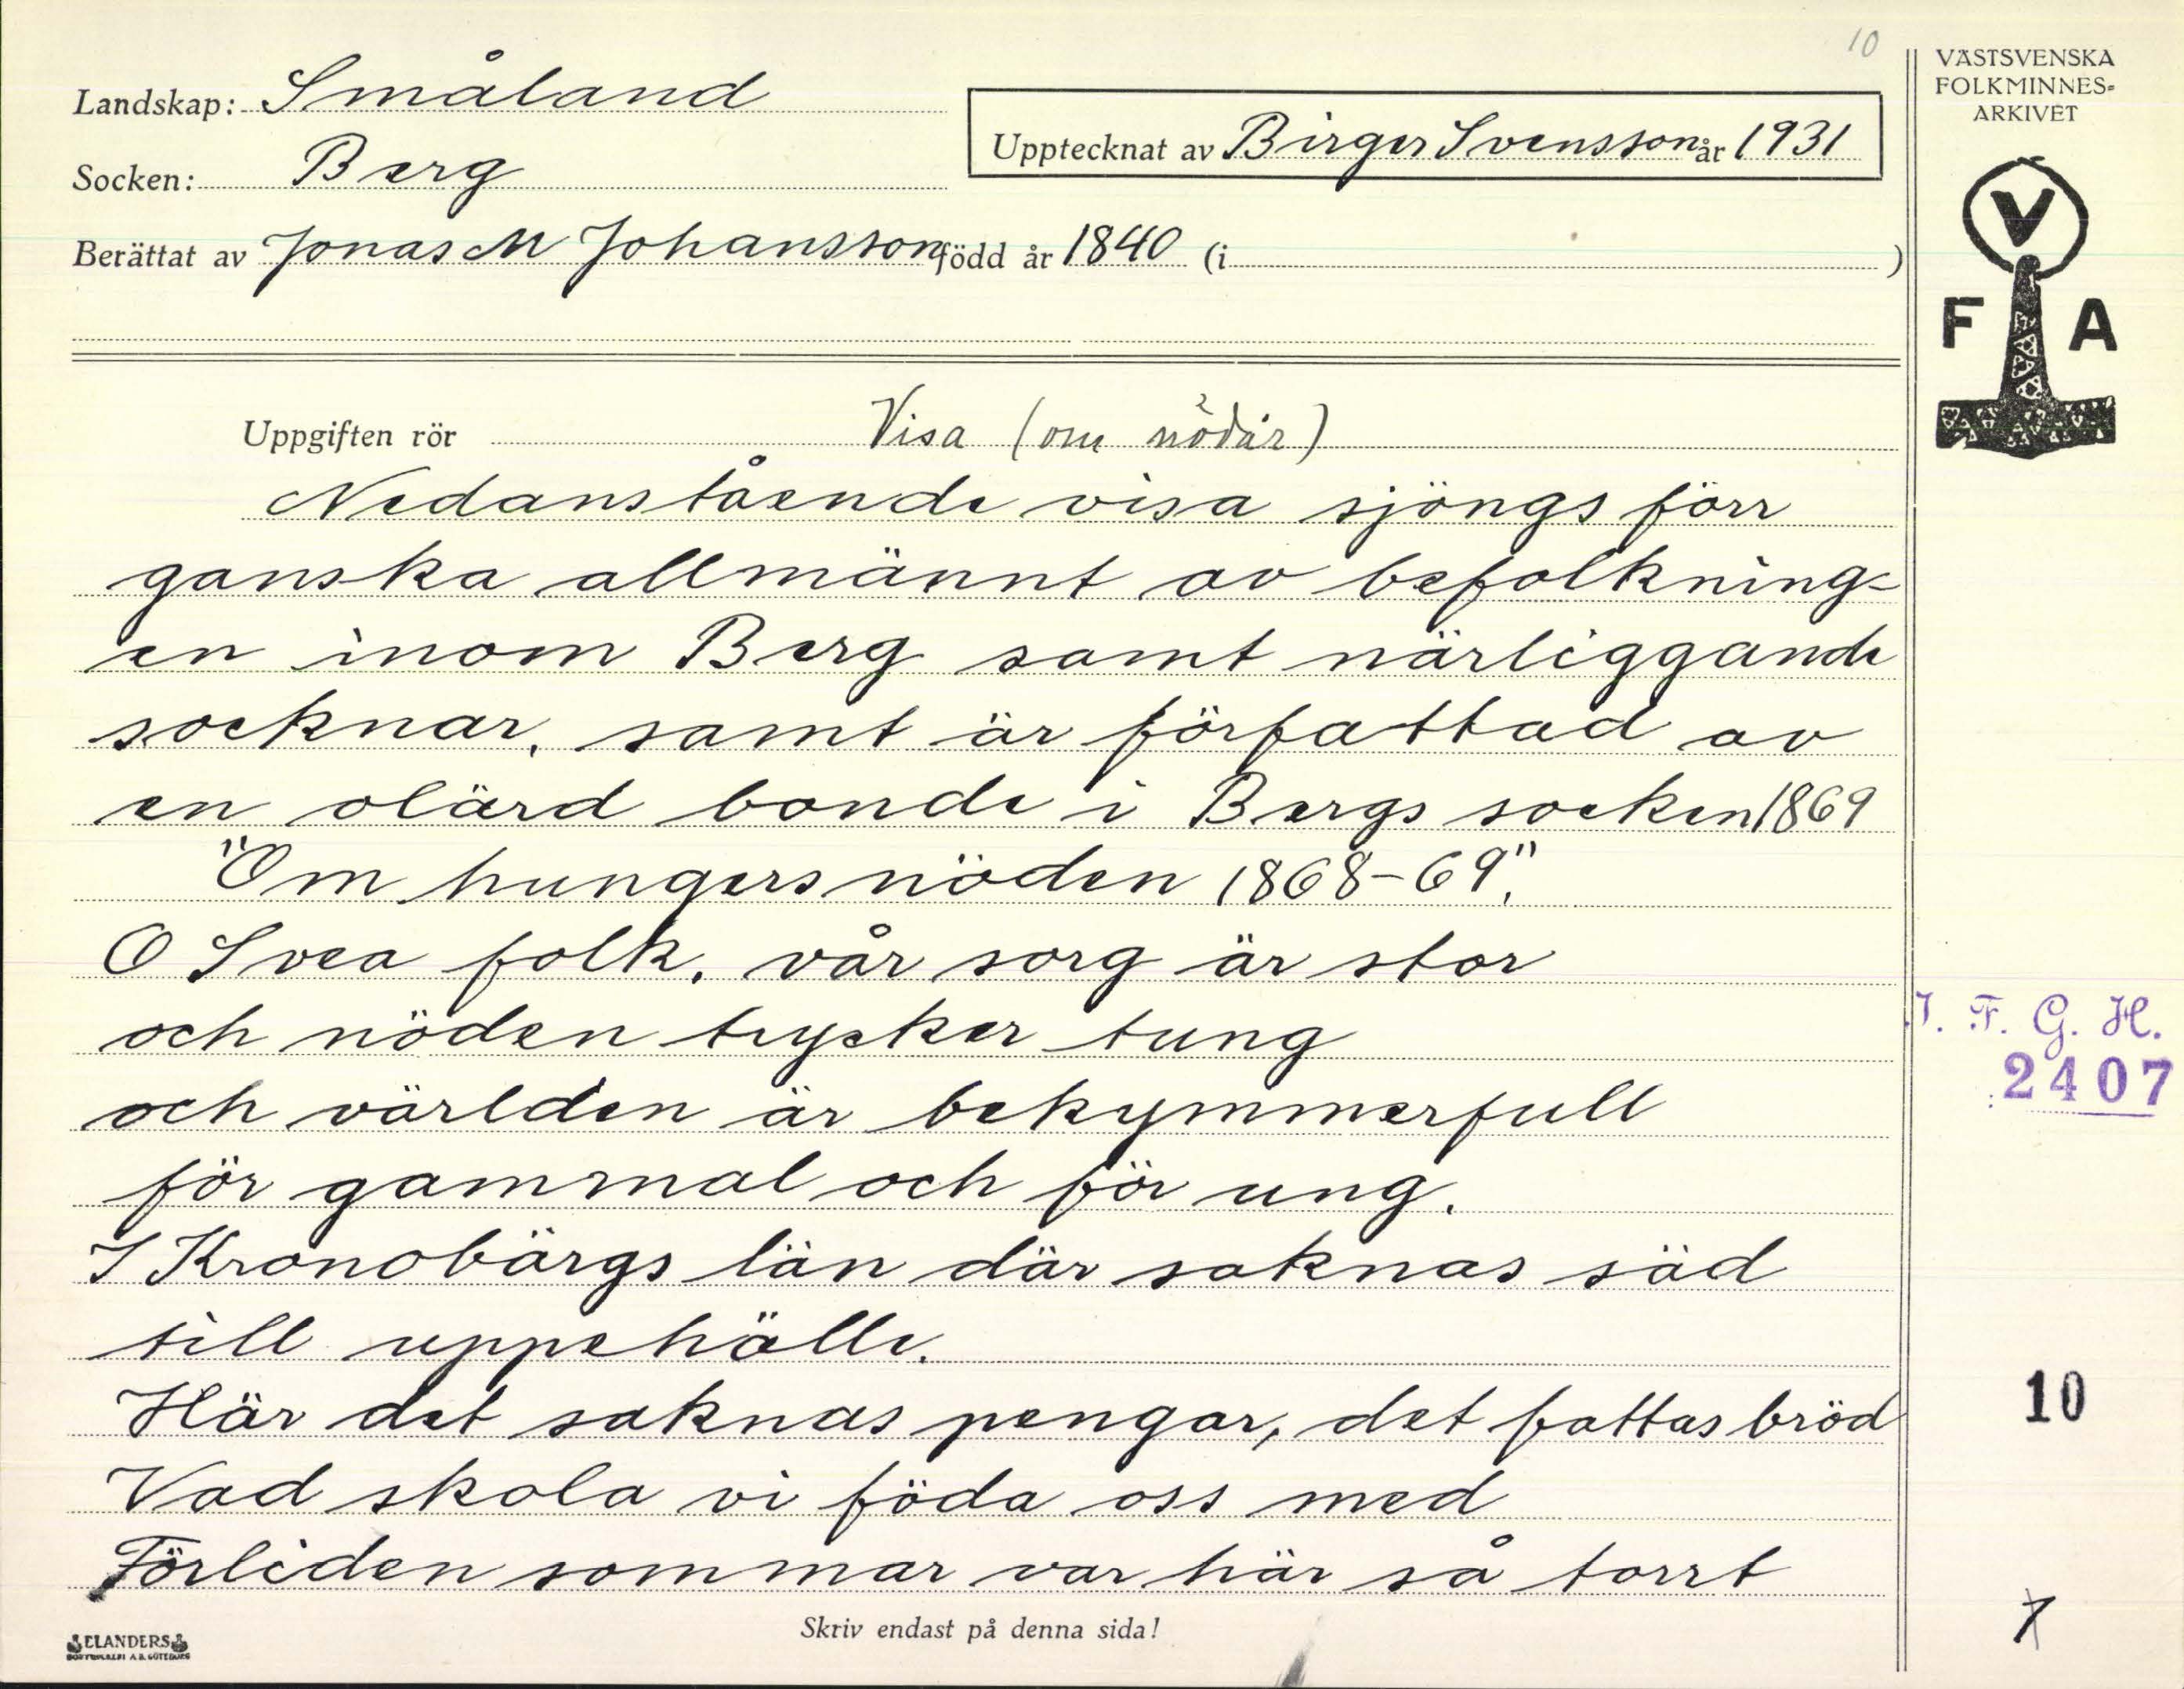 10
VÄSTSVENSKA
FOLKMINNES-
ARKIVET
Landskap: Småland
Upptecknat av Birger Svensson år 1931
Socken: Berg
Berättat av Jonas M Johansson född år 1840 (i )
V
F A
Uppgiften rör Visa (om nödår)
Nedanstående visa sjöngs förr
ganska allmännt av befolkning-
en inom Berg samt närliggande
socknar, samt är författad av
en olärd bonde i Bergs socken 1869
"Om hungersnöden 1868-69".
O Svea folk, vår sorg är stor
och nöden trycker tung
och världen är bekymmerfull
för gammal och för ung.
I Kronobärgs län där saknas säd
till uppehälle.
Här det saknas pengar, det fattas bröd
Vad skola vi föda oss med
Förliden sommar var här så torrt
I. F. G. H.
2407
10
Skriv endast på denna sida!
ELANDERS
BOKTRYCKERI A.B. GÖTEBORG